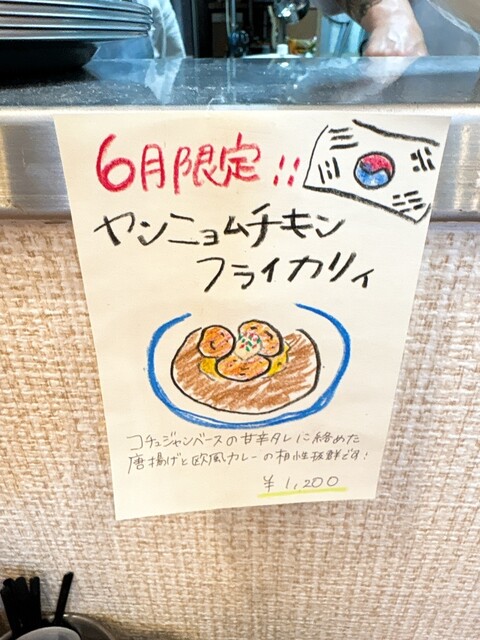 6月限定!!
ヤンニョムチキン
フライカリィ
コチュジャンベースの甘辛タレに絡めた
唐揚げと欧風カレーの相性抜群です!
¥1,200